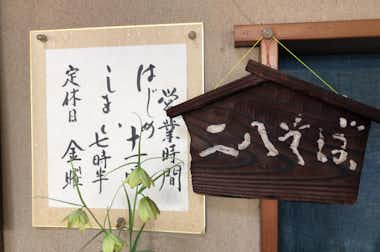 営業時間
はじめ 十一
しまい 七時半
定休日 金曜
二八そば